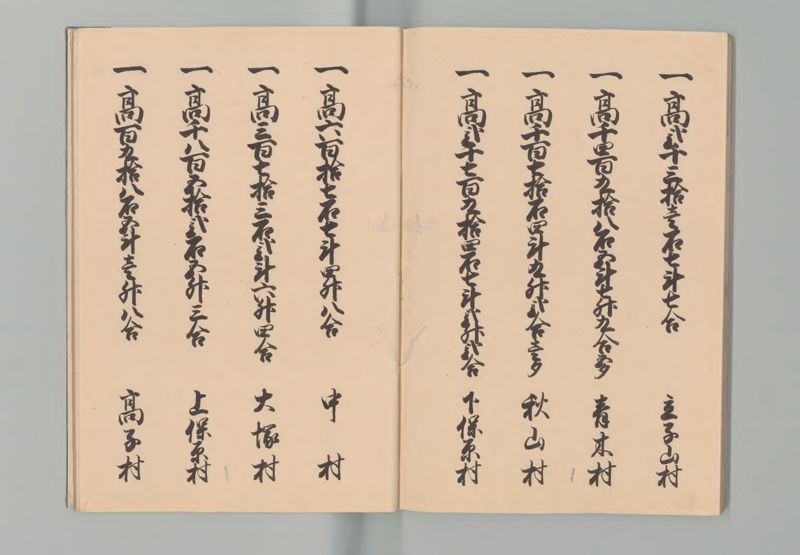 一高弐千三拾壱石七斗七合 立子山村
一高千四百九拾八石五斗七舛九合五夕 青木村
一高千百七拾石四斗九舛弐合壱夕 秋山村
一高弐千七百九拾四石七斗弐舛弐合 下保原村
一高六百拾七石七斗四舛八合 中村
一高三百七拾三石弐斗六舛四合 大塚村
一高千八百五拾弐石五舛三合 上保原村
一高百九拾八石五斗壱舛八合 高子村